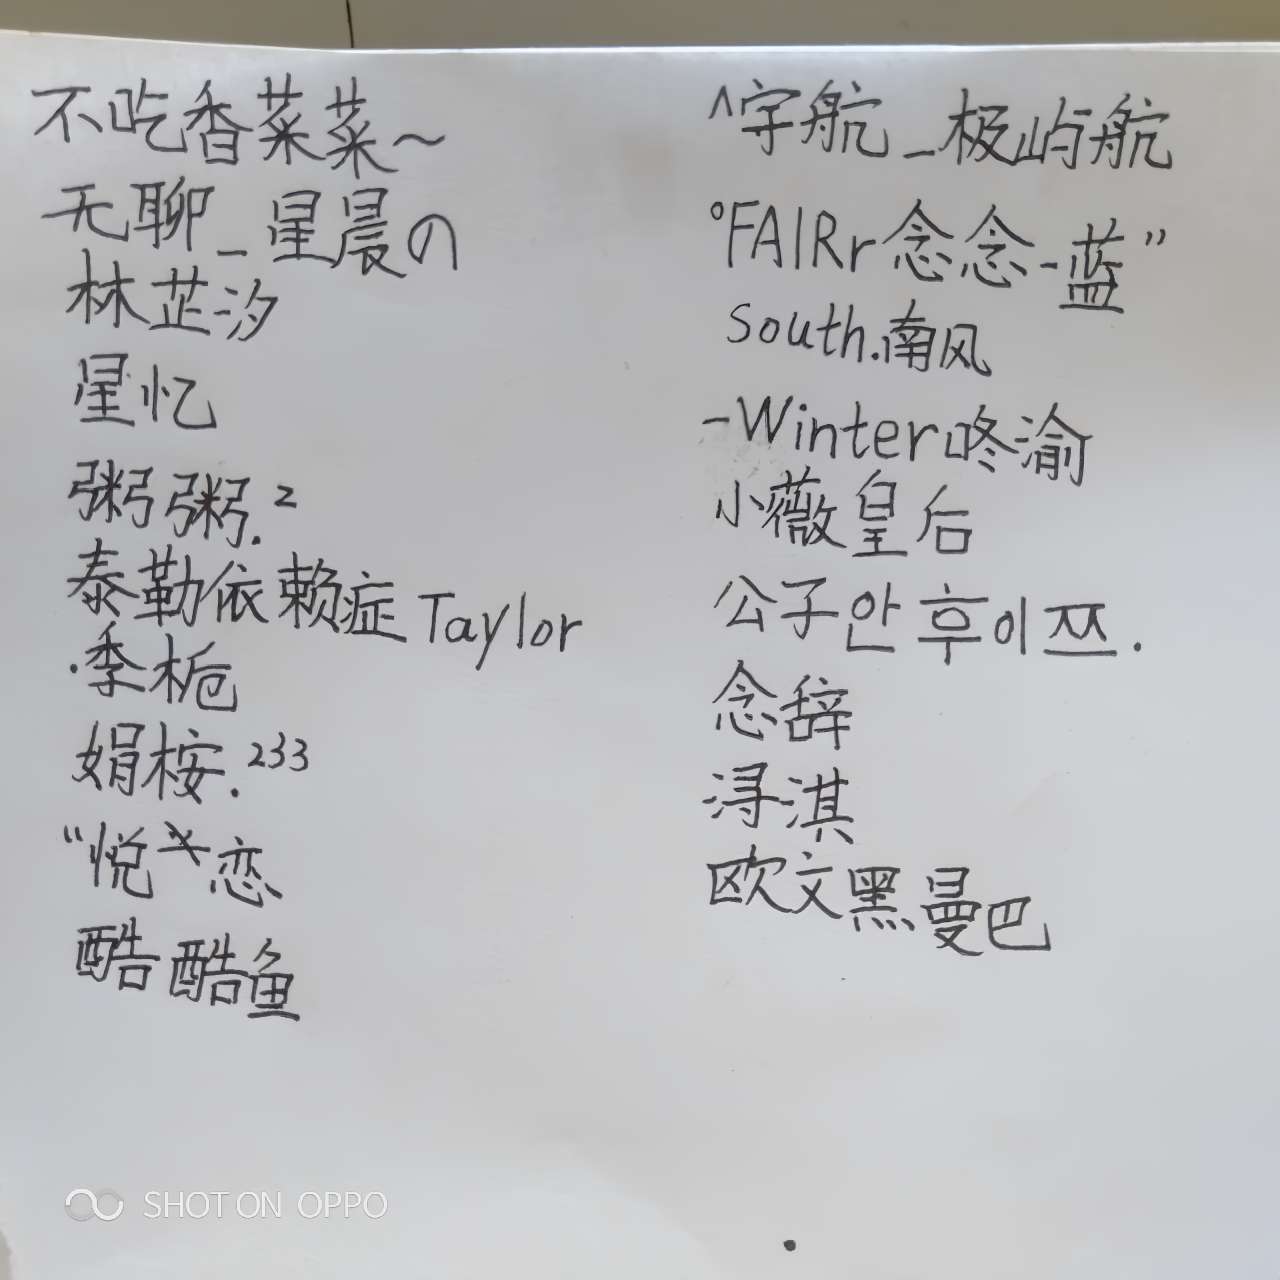 不吃香菜菜~
无聊_星晨の
林芷汐
星忆
粥粥.²
泰勒依赖症Taylor
.季栀
娟桉.²³³
“悦 恋
酷酷鱼
^宇航_极屿航
°FAIRr念念-蓝”
South.南风
-Winter咚渝
小薇皇后
公子안후이쯔.
念辞
浔淇
欧文黑曼巴
SHOT ON OPPO